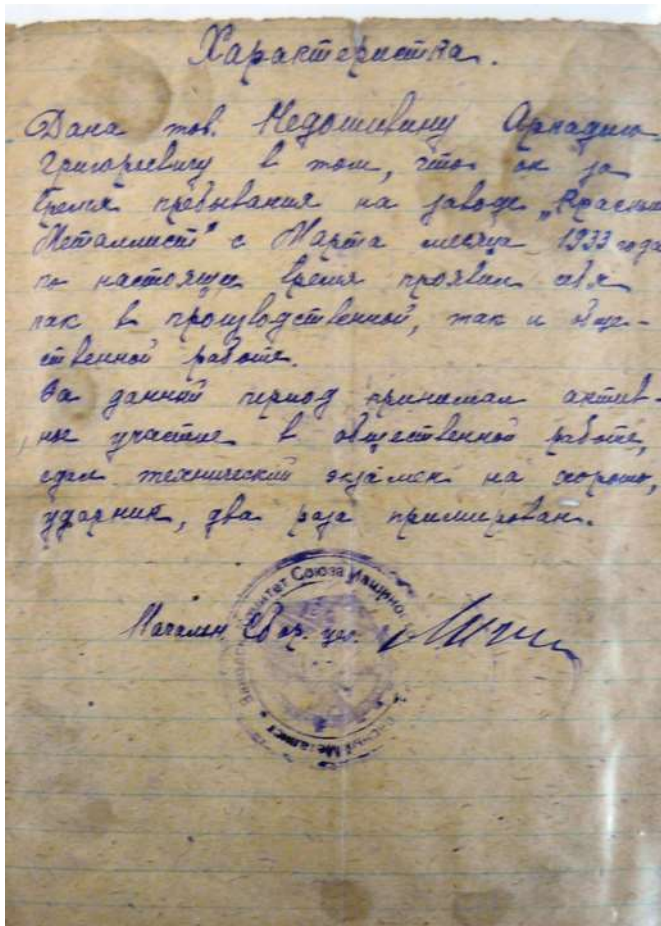 Характеристика.
Дана тов. Недошивину Аркадию
Григорьевичу в том, что он за
время пребывания на заводе „Красный
Металлист" с Марта месяца 1933 года
по настоящее время проявил себя
как в производственной, так и обще-
ственной работе.
За данный период принимал актив-
ное участие в общественной работе,
сдал технический экзамен на хорошо,
ударник, два раза примирован.
Начальн.
комитет Союза Машино
Красный Металлист